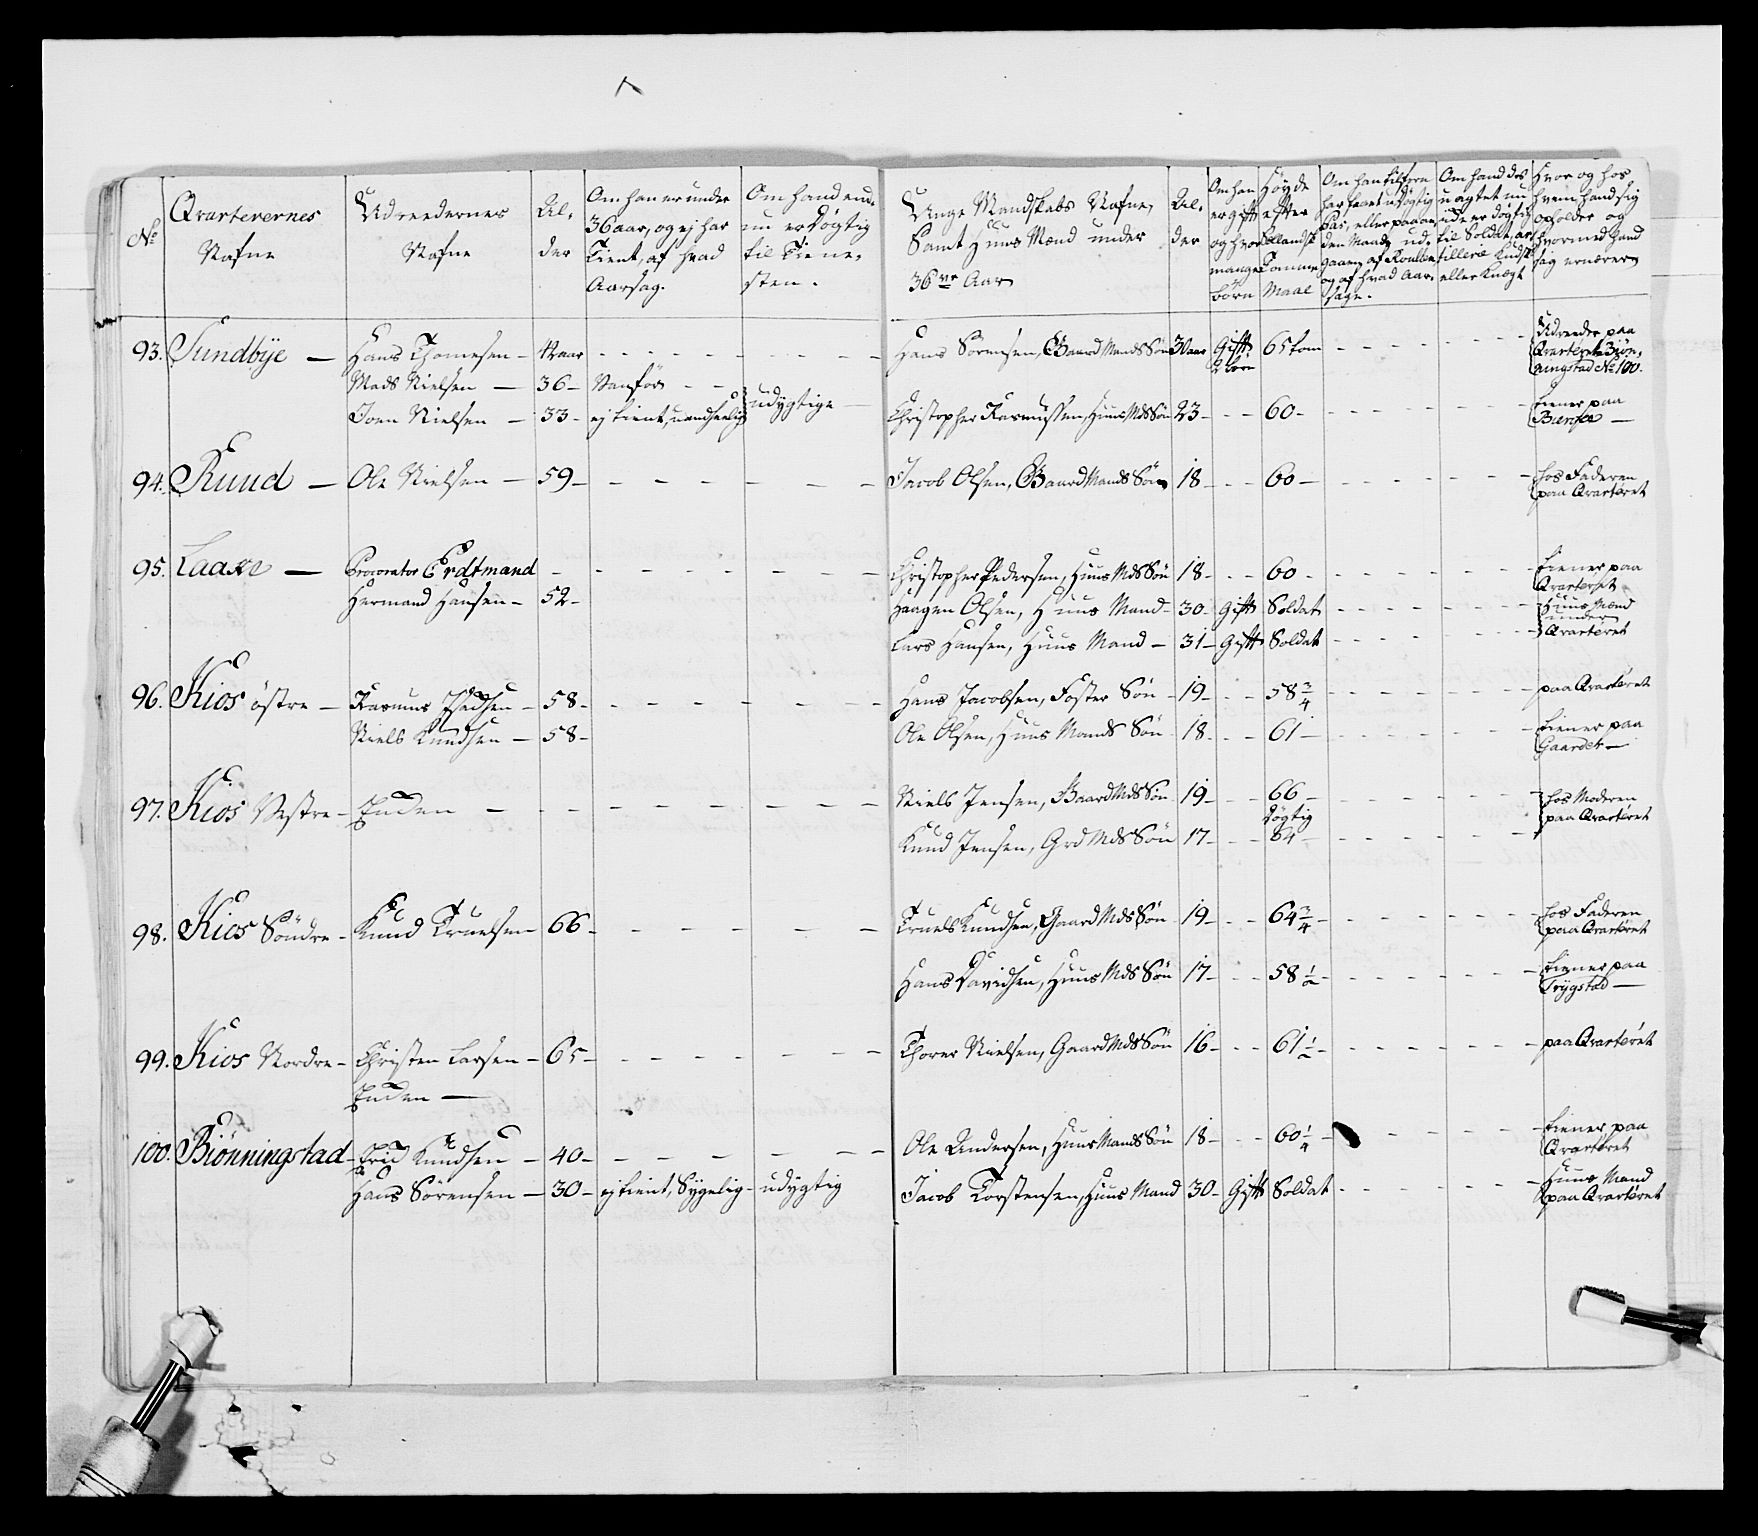 No
Qvarterernes
Nafne
Udreedernes
Nafne
Al,
der
Om han er under
36 aar, og ej har
Tient, af hvad
Aarsag.
Om hand end,
nu er døgtig
til Tiene,
sten.
Unge Mandskabs Nafne,
Samt Huus Mænd under
36ve Aar
Al,
der
Om han
er gift
og hvor
mange
børn
Høyde
efter
Sellandsk
Tomme
Maal
Om han tilforn
har faaet udygtig
Pas, eller paa an
den Maade ud,
gaaen af Roullen
og af hvad Aar,
sage.
Om hand des
uagtet nu
ude er døgtig
til Soldat, ar,
tillerie Kudsk
eller Knægt
Hvor og hos
hvem hand sig
opholder og
hvormed hand
sig ernærer
93. Sundbye — Hans Thomesen - aar - - - Hans Sørensen, Gaard Mands Søn 30 aar Gift 65 tom - - - Udreeder paa
2 børn Qvarteret Biøn,
ningstad No 100.
Mads Nielsen — 36 - Vanfør - -
udygtige
Joen Nielsen — 33 - ej tient, uandseelig Christopher Rasmussen, Huus Mds Søn 23 - - - 60 - - - tiener paa
94. Ruud — Ole Nielsen — 59 - - - Jacob Olsen, Gaard Mands Søn 18 - - - 60 - - - hos Faderen
paa Qvarteret
95. Laaxe — Procorator Erdtmand - - - Christopher Pedersen, Huus Mds Søn 18 - - - 60 - - - tiener paa
Qvarteret
Hermand Hansen - 52 - Haagen Olsen, Huus Mand - 30 - Gift Soldat - - - Huus Mænd
under
Lars Hansen, Huus Mand — 31 - Gift Soldat - - - Qvarteret
96. Kios østre — Rasmus - 58 - - - Hans Jacobsen, Foster Søn - 19 - - - 58 3/4 - - - paa Qvarteret
Niels Knudsen — 58 - Ole Olsen, Huus Mands Søn 18 - - - 61 - - - tiener paa
Gaarder —
97. Kios Vestre - Enken — - - - Niels Jensen, Gaard Mds Søn 19 - - - 66 - - - hos Moderen
døgtig paa Qvarteret
Knud Jensen, Grd Mds Søn 17 - - - 64 - - -
98. Kios Søndre - Knud Truelsen 66 - - - Truels Knudsen, Gaard Mds Søn 19 - - - 64 3/4 - - - hos Faderen
paa Qvarteret
Hans Davidsen, Huus Mds Søn 17 - - - 58 1/2 - - - tiener paa
Trygstad —
99. Kios Nordre - Christen Larsen - 65 - - - Thorer Nielsen, Gaard Mds Søn 16 - - - 61 1/2 - - - paa Qvarteret
Enken —
100. Biønningstad - Erid Knudsen — 40 - - - Ole Andersen, Huus Mands Søn 18 - - - 60 1/4 - - - tiener paa
Qvarteret
Hans Sørensen — 30 - ej tient, Sygelig - udygtig Jacob Torstensen, Huus Mand 30 - Gift Soldat - - - Huus Mand
paa Qvarteret